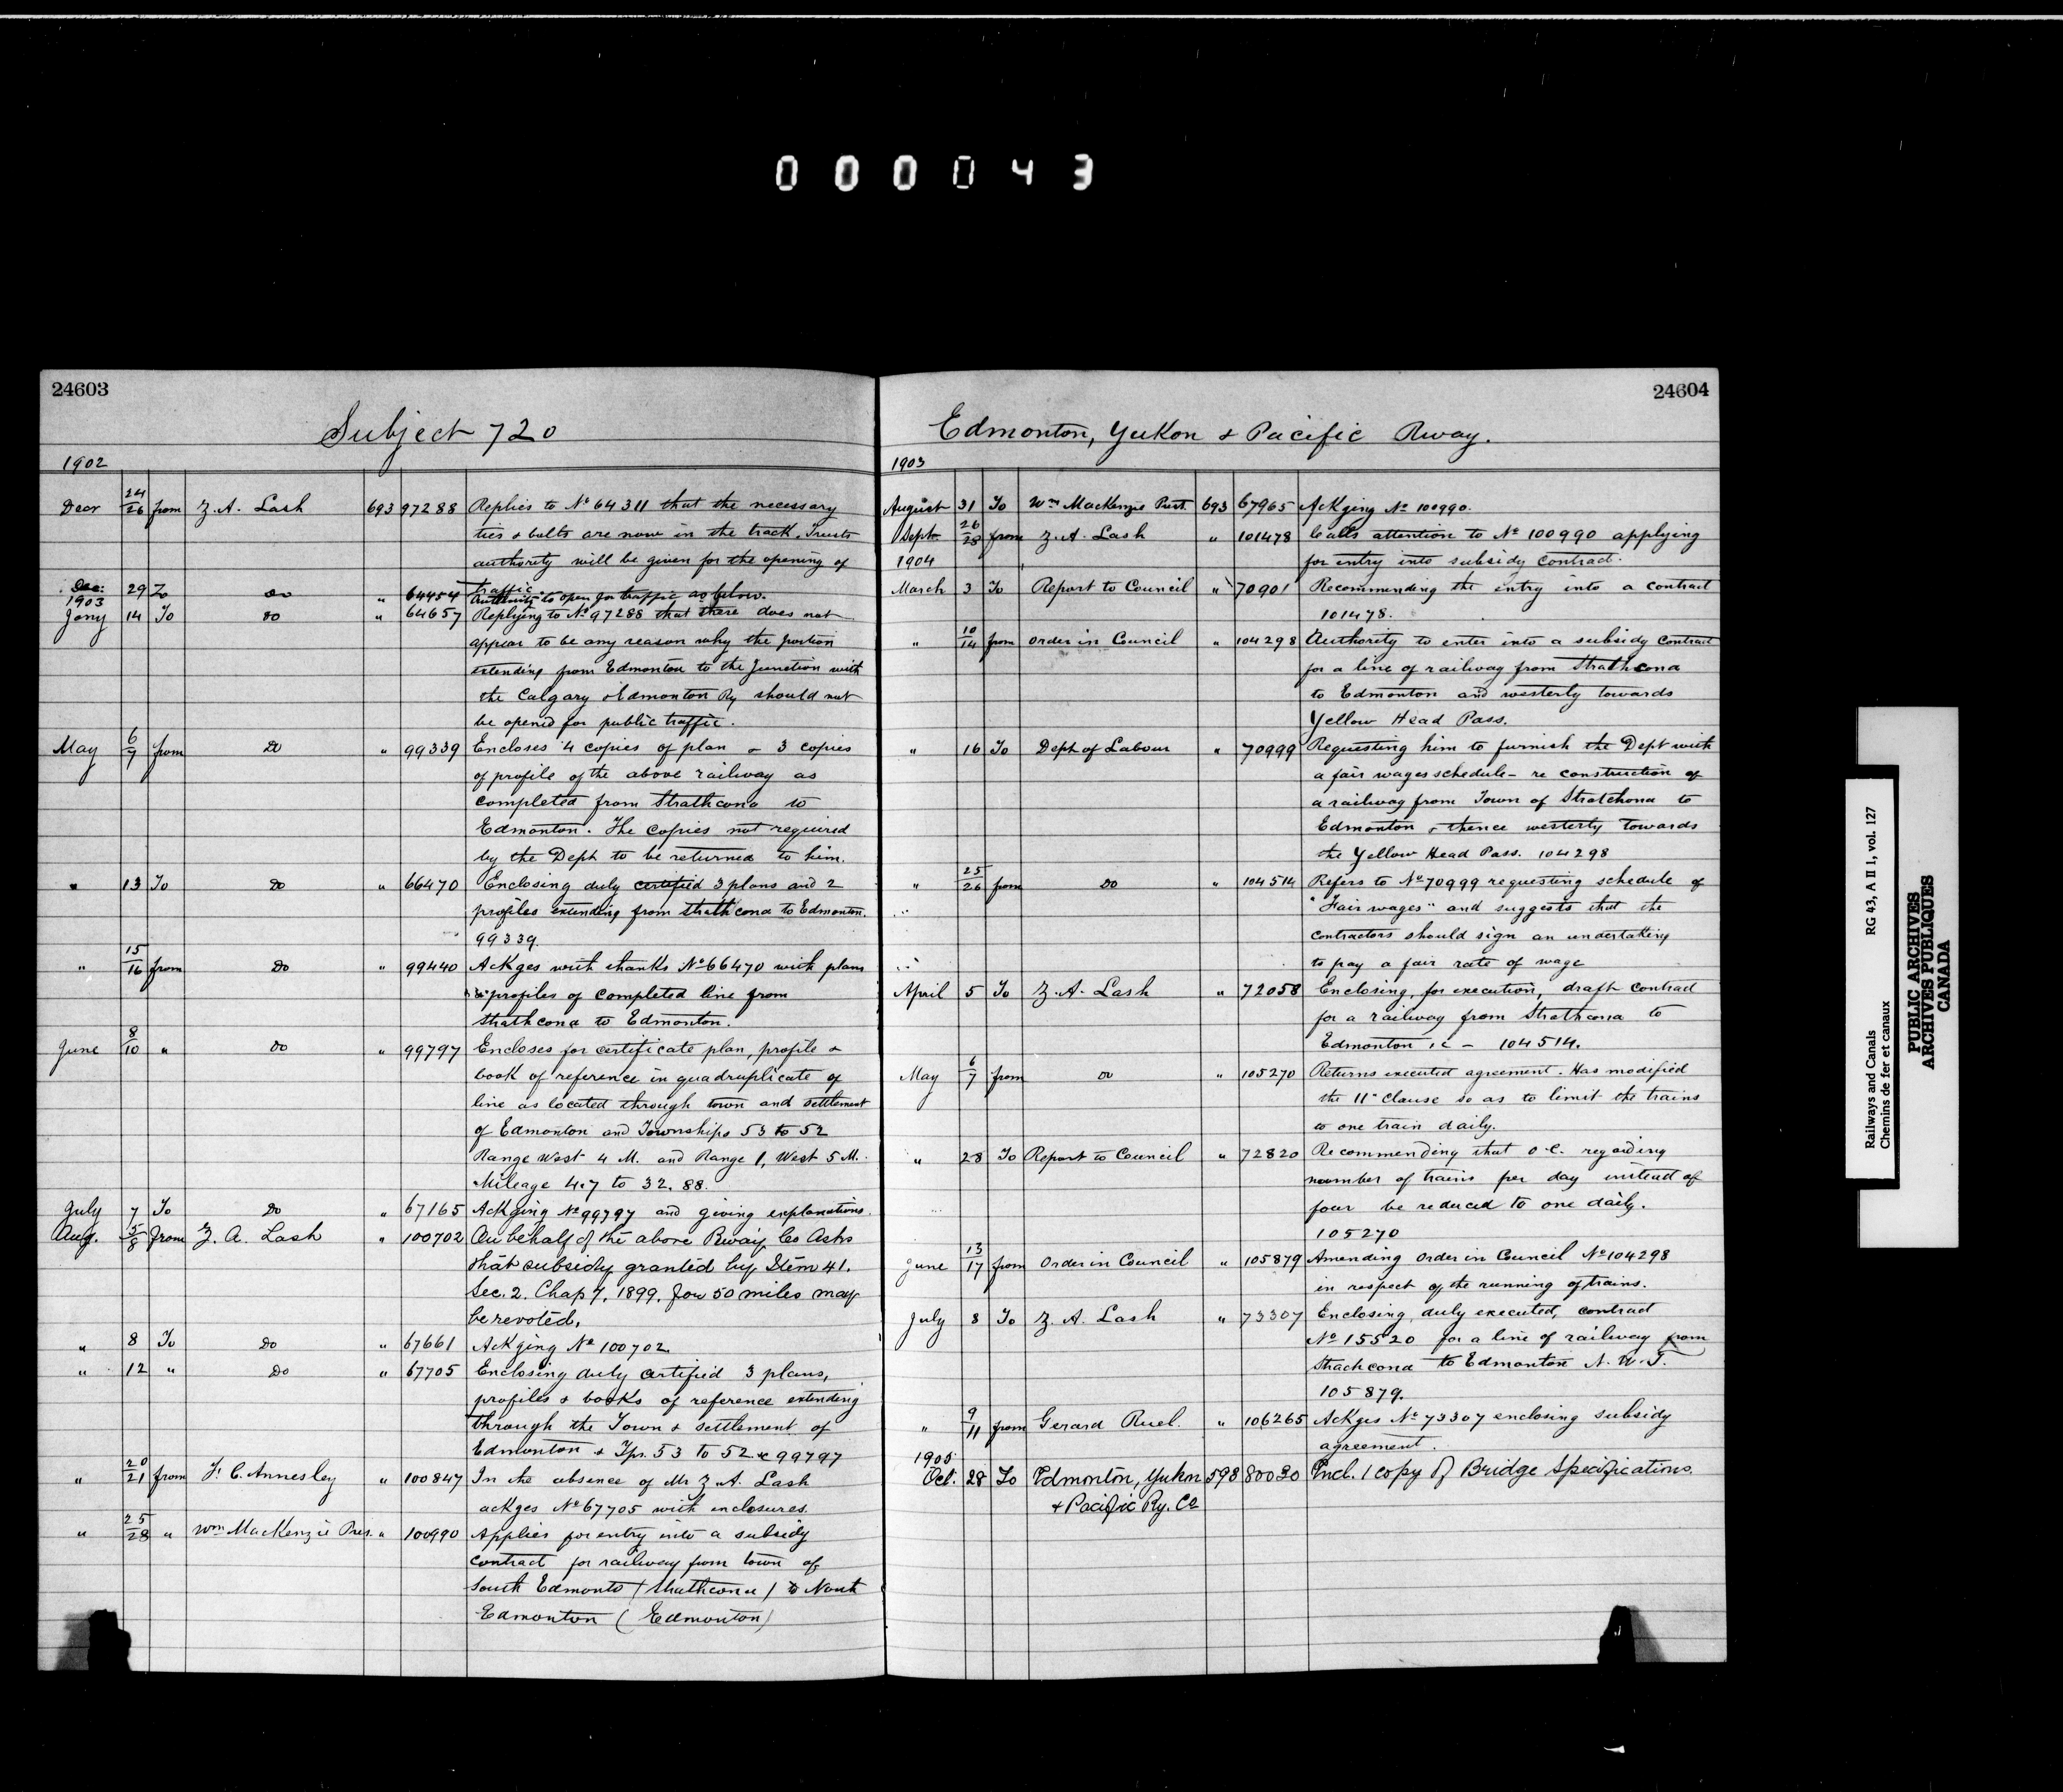 000043
24603
Subject 720
1902
Decr 24/26 from Z. A. Lash 693 97288 Replies to No 64311 that the necessary
ties & bolts are now in the track. Trusts
authority will be given for the opening of
traffic.
Dec: 29 To Do " 64454 Authority to open for traffic as below.
1903
Jany 14 To Do " 64657 Replying to No 97288 that there does not
appear to be any reason why the portion
extending from Edmonton to the Junction with
the Calgary & Edmonton Ry should not
be opened for public traffic.
May 6/7 from Do " 99339 Encloses 4 copies of plan & 3 copies
of profile of the above railway as
completed from Strathcona to
Edmonton. The copies not required
by the Dept to be returned to him.
" 13 To Do " 66470 Enclosing duly certified 3 plans and 2
profiles extending from Strathcona to Edmonton.
99339
" 15/16 from Do " 99440 Ackges with thanks No 66470 with plans
& profiles of completed line from
Strathcona to Edmonton.
June 8/10 " Do " 99797 Encloses for certificate plan, profile &
book of reference in quadruplicate of
line as located through town and settlement
of Edmonton and Townships 53 to 52
Range West 4 M. and Range 1, West 5 M.
Mileage 4.7 to 32.88.
July 7 To Do " 67165 Ackging No 99797 and giving explanations.
Aug. 5/8 from Z. A. Lash " 100702 On behalf of the above Rway Co Asks
that subsidy granted by Item 41.
Sec. 2. Chap 7. 1899. for 50 miles may
be revoted.
" 8 To Do " 67661 Ackging No 100702.
" 12 " Do " 67705 Enclosing duly certified 3 plans,
profiles & books of reference extending
through the Town & settlement of
Edmonton & Tps. 53 to 52 & 99797
" 20/21 from F. C. Annesley " 100847 In the absence of Mr Z. A. Lash
ackges No 67705 with enclosures.
" 25/28 " Wm MacKenzie Pres. " 100990 Applies for entry into a subsidy
contract for railway from town of
South Edmonto (Strathcona) to North
Edmonton (Edmonton)
24604
Edmonton, Yukon & Pacific Rway.
1903
August 31 To Wm MacKenzie Prest. 693 67965 Ackging No 100990.
Sept. 26/28 from Z. A. Lash " 101478 Calls attention to No 100990 applying
for entry into subsidy contract.
1904
March 3 To Report to Council " 70901 Recommending the entry into a contract
101478.
" 10/14 from Order in Council " 104298 Authority to enter into a subsidy contract
for a line of railway from Strathcona
to Edmonton and westerly towards
Yellow Head Pass.
" 16 To Dept of Labour " 70999 Requesting him to furnish the Dept with
a fair wages schedule - re construction of
a railway from Town of Stratchona to
Edmonton & thence westerly towards
the Yellow Head Pass. 104298
" 25/26 from Do " 104514 Refers to No 70999 requesting schedule of
"Fair wages" and suggests that the
contractors should sign an undertaking
to pay a fair rate of wage
April 5 To Z. A. Lash " 72058 Enclosing, for execution, draft contract
for a railway from Strathcona to
Edmonton &c - 104514.
May 6/7 from Do " 105270 Returns executed agreement. Has modified
the 11" Clause so as to limit the trains
to one train daily.
" 28 To Report to Council " 72820 Recommending that O.C. regarding
number of trains per day instead of
four be reduced to one daily.
105270
June 13/17 from Order in Council " 105879 Amending Order in Council No 104298
in respect of the running of trains.
July 8 To Z. A. Lash " 73307 Enclosing, duly executed, contract
No 15520 for a line of railway from
Strachcona to Edmonton N.W.T.
105879.
" 9/11 from Gerard Ruel. " 106265 Ackges No 73307 enclosing subsidy
agreement.
1905
Oct. 28 To Edmonton, Yukon 598 80030 Encl. 1 copy of Bridge Specifications.
& Pacific Ry. Co
Railways and Canals RG 43, A II 1, vol. 127
Chemins de fer et canaux
PUBLIC ARCHIVES
ARCHIVES PUBLIQUES
CANADA